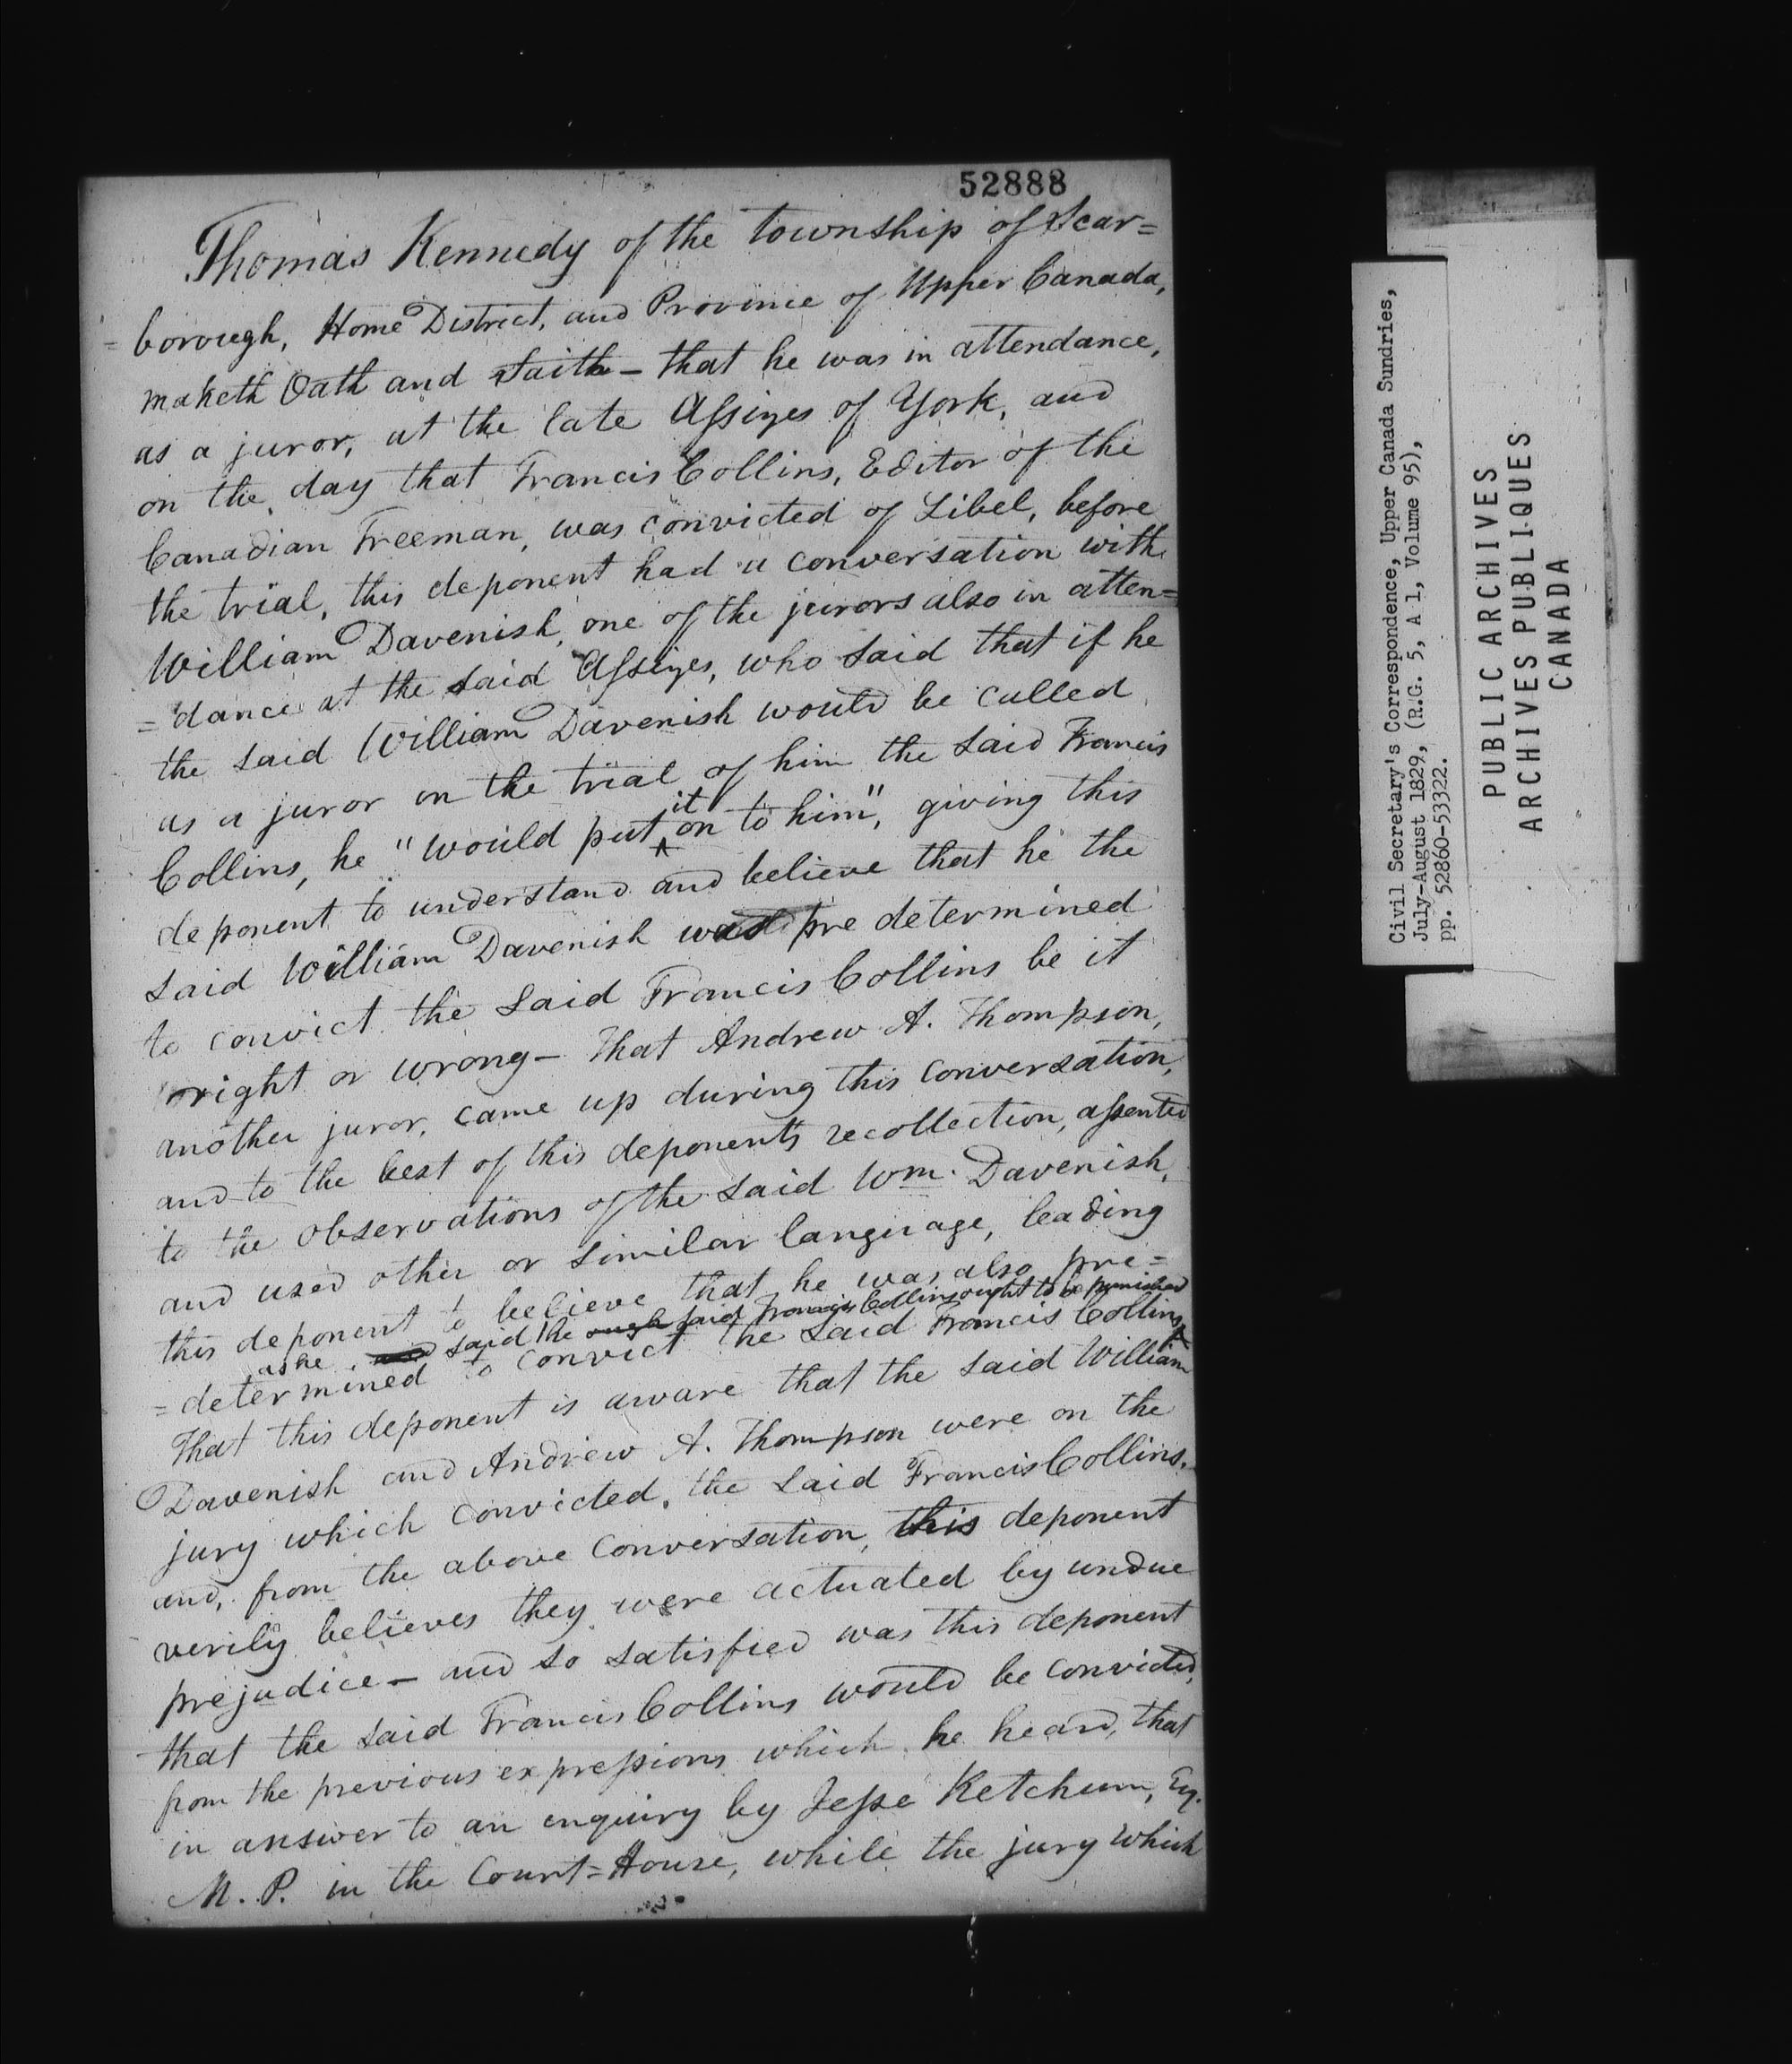 52888
Thomas Kennedy of the township of Scar=
=borough, Home District, and Province of Upper Canada,
maketh Oath and Saith - that he was in attendance,
as a juror, at the late Assizes of York, and
on the day that Francis Collins, Editor of the
Canadian Freeman, was convicted of Libel, before
the trial, this deponent had a conversation with
William Davenish, one of the jurors also in atten=
=dance at the said Assizes, who said that if he
the said William Davenish would be called
as a juror on the trial of him the said Francis
Collins, he "would put it on to him", giving this
deponent to understand and believe that he the
said William Davenish was pre determined
to convict the said Francis Collins be it
right or wrong - That Andrew A. Thompson,
another juror, came up during this conversation,
and to the best of this deponent's recollection, assented
to the observations of the said Wm. Davenish,
and used other or similar language, leading
this deponent to believe that he was also pre=
as he said the said Francis Collins ought to be punished
=determined to convict the said Francis Collins
That this deponent is aware that the said William
Davenish and Andrew A. Thompson were on the
jury which convicted, the said Francis Collins.
and, from the above conversation, this deponent
verily believes they were actuated by undue
prejudice - and so satisfied was this deponent
that the said Francis Collins would be convicted,
from the previous expressions which he heard, that
in answer to an enquiry by Jesse Ketchum, Esq.
M. P. in the Court=House, while the jury which
Civil Secretary's Correspondence, Upper Canada Sundries,
July-August 1829, (R.G. 5, A 1, Volume 95),
pp. 52860-53322.
PUBLIC ARCHIVES
ARCHIVES PUBLIQUES
CANADA